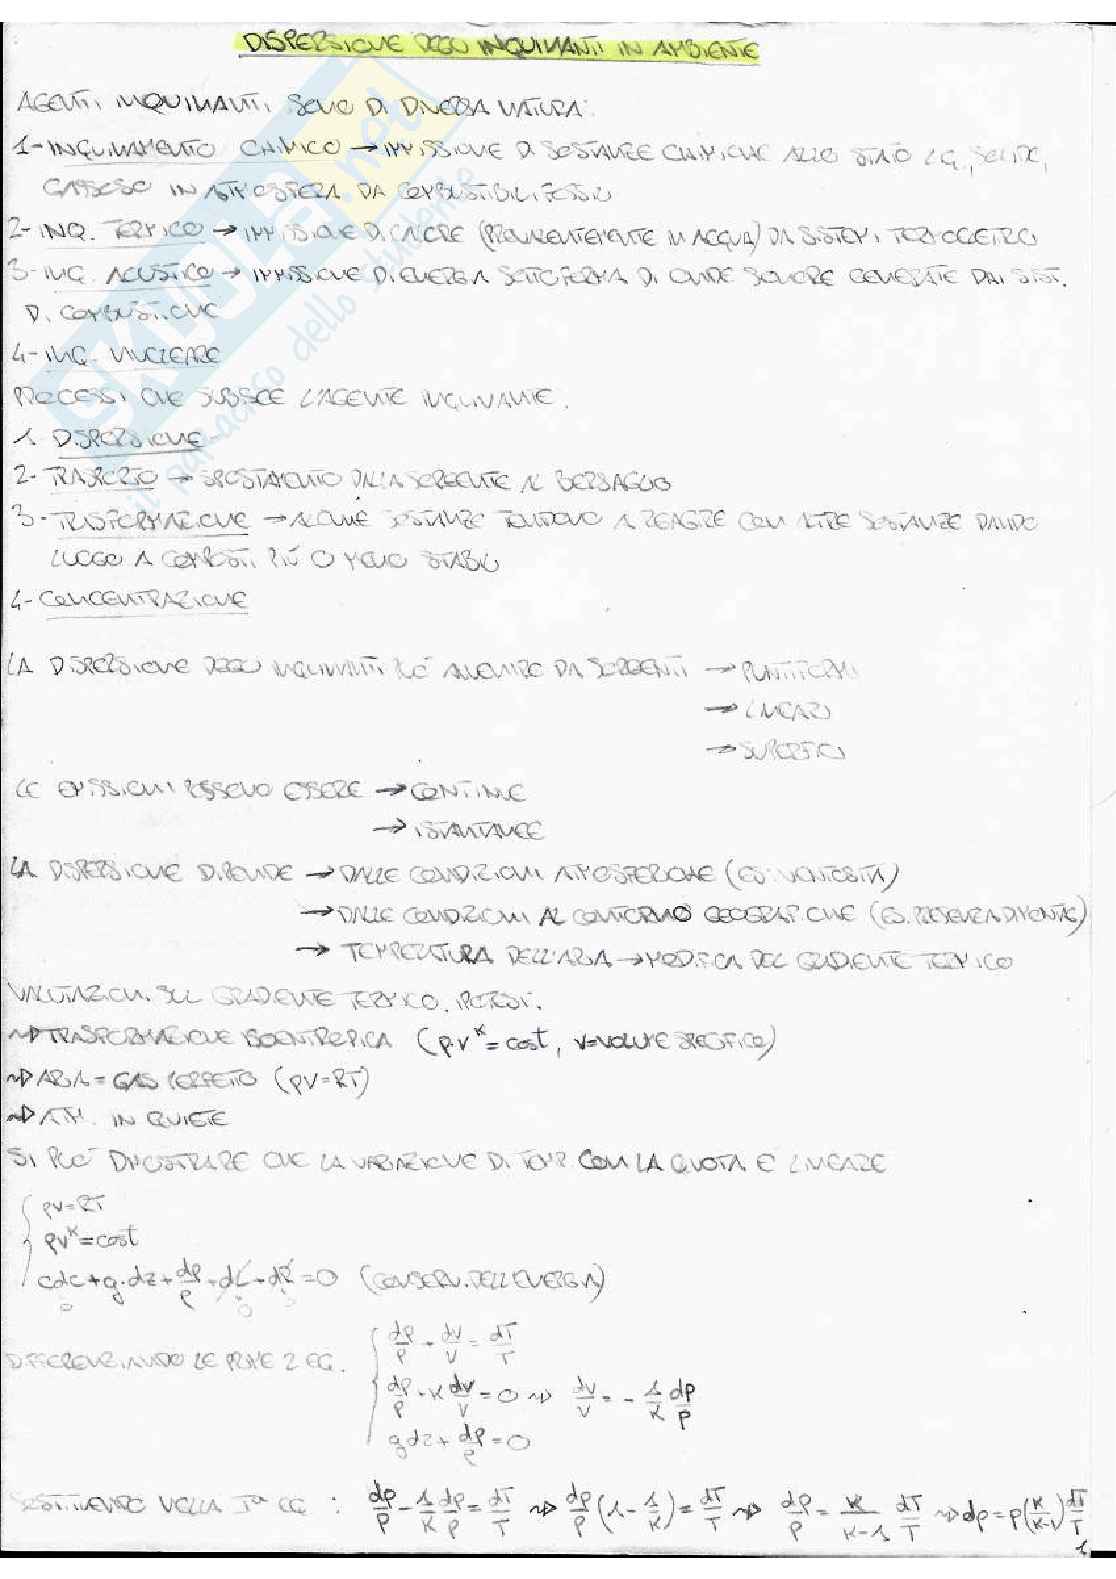 DISPERSIONE DEGLI INQUINANTI IN AMBIENTE
AGENTI INQUINANTI SONO DI DIVERSA NATURA:
1- INQUINAMENTO CHIMICO → IMMISSIONE DI SOSTANZE CHIMICHE ALLO STATO LIQ., SOLIDO,
GASSOSO IN ATMOSFERA DA COMBUSTIBILI FOSSILI
2- INQ. TERMICO → IMMISSIONE DI CALORE (PREVALENTEMENTE IN ACQUA) DA SISTEMI TERMOELETTRICI
3- INQ. ACUSTICO → IMMISSIONE DI ENERGIA SOTTOFORMA DI ONDE SONORE GENERATE DAI SIST.
DI COMBUSTIONE
4- INQ. NUCLEARE
PROCESSI CHE SUBISCE L'AGENTE INQUINANTE.
1- DISPERSIONE
2- TRASPORTO → SPOSTAMENTO DALLA SORGENTE AL BERSAGLIO
3- TRASFORMAZIONE → ALCUNE SOSTANZE TENDONO A REAGIRE CON ALTRE SOSTANZE DANDO
LUOGO A COMPOSTI PIÙ O MENO STABILI
4- CONCENTRAZIONE
LA DISPERSIONE DEGLI INQUINANTI PUÒ AVVENIRE DA SORGENTI → PUNTIFORMI
→ LINEARI
→ SUPERFICI
LE EMISSIONI POSSONO ESSERE → CONTINUE
→ ISTANTANEE
LA DISPERSIONE DIPENDE → DALLE CONDIZIONI ATMOSFERICHE (ES: VENTOSITÀ)
→ DALLE CONDIZIONI AL CONTORNO GEOGRAFICHE (ES. PRESENZA DI MONTAG)
→ TEMPERATURA DELL'ARIA → MODIFICA DEL GRADIENTE TERMICO
VALUTAZIONI SUL GRADIENTE TERMICO. IPOTESI:
⇝ TRASFORMAZIONE ISOENTROPICA (pv^K = cost, v=VOLUME SPECIFICO)
⇝ ARIA = GAS PERFETTO (pv=RT)
⇝ ATM. IN QUIETE
SI PUÒ DIMOSTRARE CHE LA VARIAZIONE DI TEMP. CON LA QUOTA È LINEARE
pv=RT
pv^K=cost
cdc+g·dz+dp/ρ+dL+dR=0 (CONSERV. DELL'ENERGIA)
0 0 0
DIFFERENZIANDO LE PRIME 2 EQ.
dp/p + dv/v = dT/T
dp/p + K dv/v = 0 ⇝ dv/v = - 1/K dp/p
gdz + dp/ρ = 0
SOSTITUENDO NELLA 1ª EQ : dp/p - 1/K dp/p = dT/T ⇝ dp/p (1 - 1/K) = dT/T ⇝ dp/p = K/(K-1) dT/T ⇝ dp = p(K/(K-1)) dT/T
1
SKUOLA.net
il paradiso dello studente